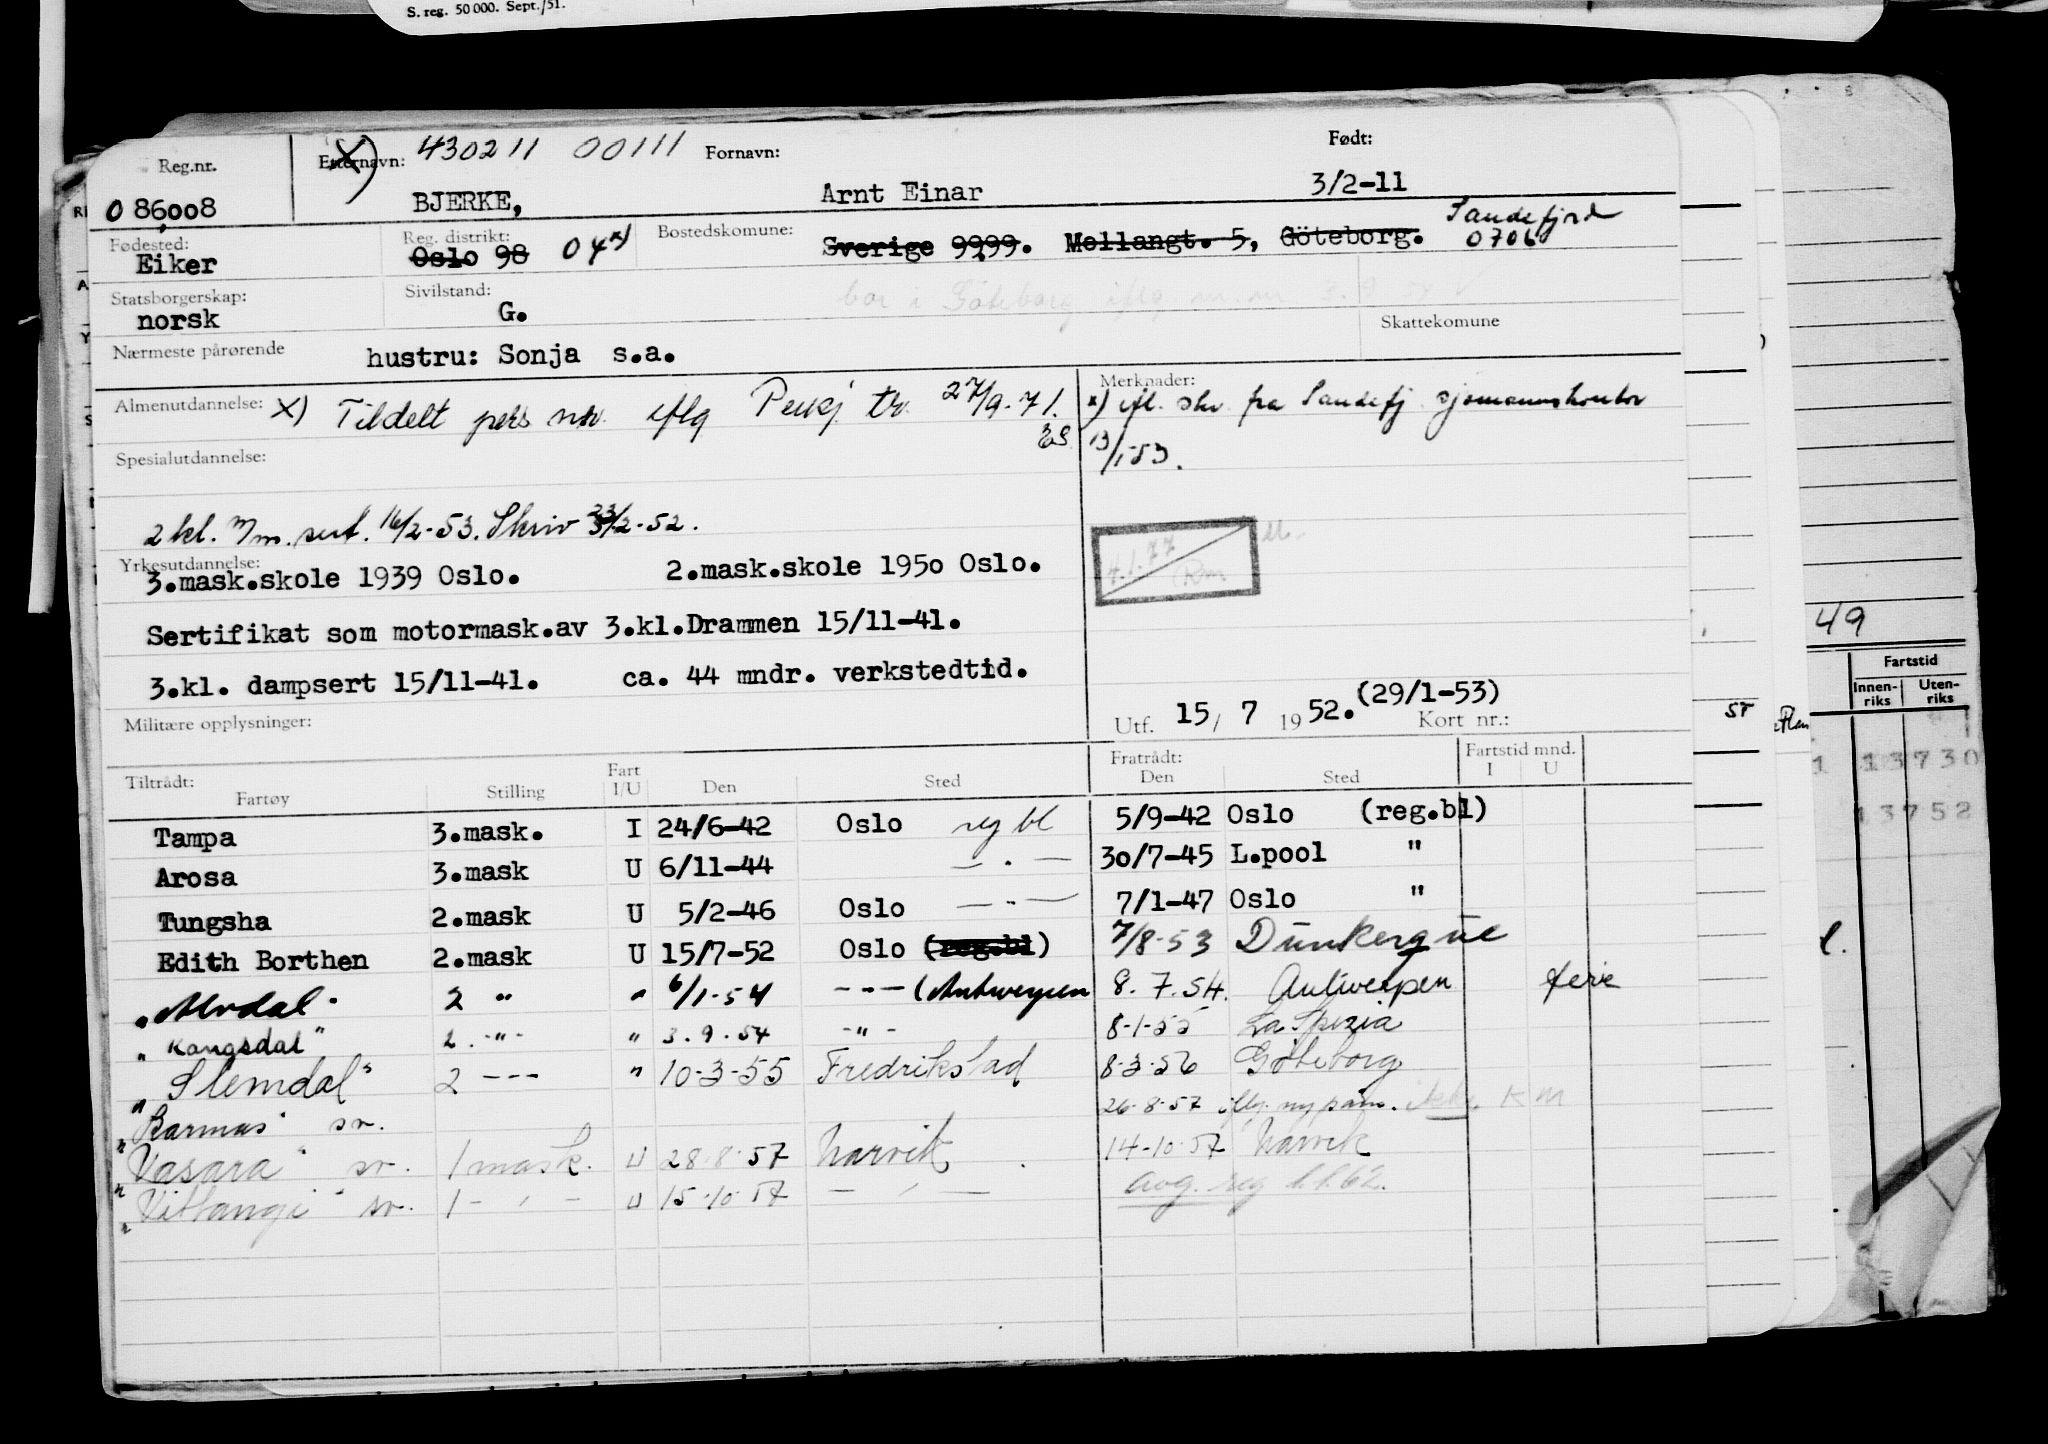 S. reg. 50 000. Sept./51.
Reg.nr.
Etternavn: X) 430211 00111
Fornavn:
Født:
0 86008
BJERKE,
Arnt Einar
3/2-11
Fødested:
Eiker
Reg. distrikt:
Oslo 98 04 x)
Bostedskomune:
Sverige 9999. Mellangt. 5, Göteborg. Sandefjord
0706
Statsborgerskap:
norsk
Sivilstand:
G.
bor i Göteborg iflg.
Skattekomune
Nærmeste pårørende
hustru: Sonja s.a.
Almenutdannelse: X) Tildelt pers nr. iflg tr. 27/9-71.
Merknader:
x) ifl. skr. fra Sandefj. sjømannskontor
13/1-53.
Spesialutdannelse:
2 kl. m/m. sert. 16/2-53. Skriv 23/2-52.
Yrkesutdannelse:
3.mask.skole 1939 Oslo. 2.mask.skole 1950 Oslo.
4.1.77
Sertifikat som motormask.av 3.kl.Drammen 15/11-41.
3.kl. dampsert 15/11-41. ca. 44 mndr. verkstedtid.
Militære opplysninger:
Utf. 15/ 7 1952. (29/1-53)
Kort nr.:
Tiltrådt:
Fartøy
Stilling
Fart
I/U
Den
Sted
Fratrådt:
Den
Sted
Fartstid mnd.
I U
Tampa 3.mask. I 24/6-42 Oslo reg bl 5/9-42 Oslo (reg.bl)
Arosa 3.mask U 6/11-44 — . — 30/7-45 L.pool "
Tungsha 2.mask U 5/2-46 Oslo — - — 7/1-47 Oslo "
Edith Borthen 2.mask U 15/7-52 Oslo (reg.bl) 7/8-53 Dunkerque
2 " " 6/1-54 - - - (Antwerpen 8. 7.54. Antwerpen ferie
"Kongsdal" 2. -"- " 3.9.54 -"- 8-1-55 La Spezia
"Slemdal" 2 --- " 10-3-55 Fredrikstad 8-3-56 Göteborg
"Barmas" sv. 26-8-57 iflg. K M
"Vasara" sv. 1 mask. U 28-8-57 Narvik 14-10-57 Narvik
"Vittangi" sv. 1 - ' - U 15-10-57 — ' — avg. reg 1.1.62.
49
Fartstid
Innen-
riks
Uten-
riks
ST
1 13730
13752
l.